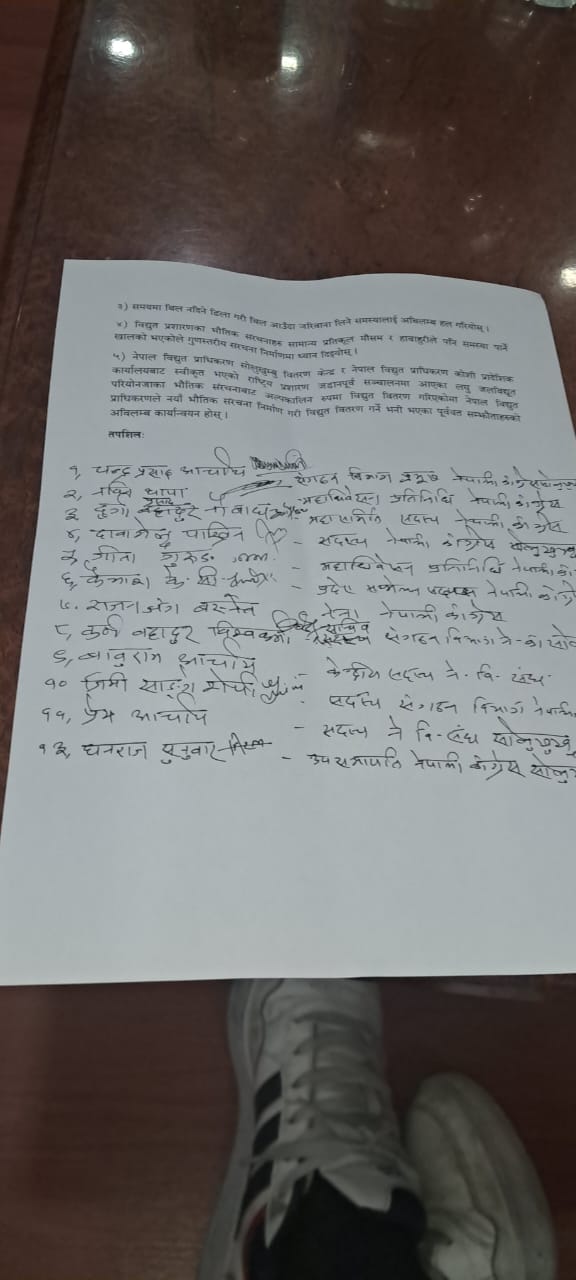 ३) समयमा बिल नदिने ढिला गरी बिल आउँदा जरिवाना लिने समस्यालाई अबिलम्ब हल गरियोस् ।
४) विद्युत प्रशारणका भौतिक संरचनाहरु सामान्य प्रतिकूल मौसम र हावाहुरीले पनि समस्या पार्ने
खालको भएकोले गुणस्तरीय संरचना निर्माणमा ध्यान दिइयोस् ।
५) नेपाल विद्युत प्राधिकरण सोलुखुम्बु वितरण केन्द्र र नेपाल विद्युत प्राधिकरण कोशी प्रादेशिक
कार्यालयबाट स्वीकृत भएको राष्ट्रिय प्रशारण जडानपूर्व सञ्चालनमा आएका लघु जलविद्युत
परियोजनाका भौतिक संरचनाबाट अल्पकालिन रुपमा विद्युत वितरण गरिएकोमा नेपाल विद्युत
प्राधिकरणले नयाँ भौतिक संरचना निर्माण गरी विद्युत वितरण गर्ने भनी भएका पूर्ववत सम्झौताहरुको
अबिलम्ब कार्यान्वयन होस् ।
तपशिलः
१, चन्द्र प्रसाद आचार्य - संगठन विभाग प्रमुख नेपाली कांग्रेस
२, थापा - महाधिवेशन प्रतिनिधि नेपाली कांग्रेस
३ दुर्गा बहादुर - महासमिति सदस्य नेपाली कांग्रेस
४, दावागेलु पाख्रिन - सदस्य नेपाली कांग्रेस
५, गीता गुरुङ - महाधिवेशन प्रतिनिधि नेपाली कां
६, के. सी. - प्रदेश सदस्य नेपाली कां
७. राजन जंग बस्नेत - नेता नेपाली कांग्रेस
८, कर्ण बहादुर विश्वकर्मा सचिव संगठन विभाग ने. कां सोलु
९, बाबुराम आचार्य - केन्द्रीय सदस्य ने. वि. संघ
१० जिमी साङगे शेर्पा - सदस्य संगठन विभाग नेपाली
११, प्रेम आचार्य - सदस्य ने वि. संघ सोलुखुम्बु
१३, धनराज सुनुवार - उपसभापति नेपाली कांग्रेस सोलु